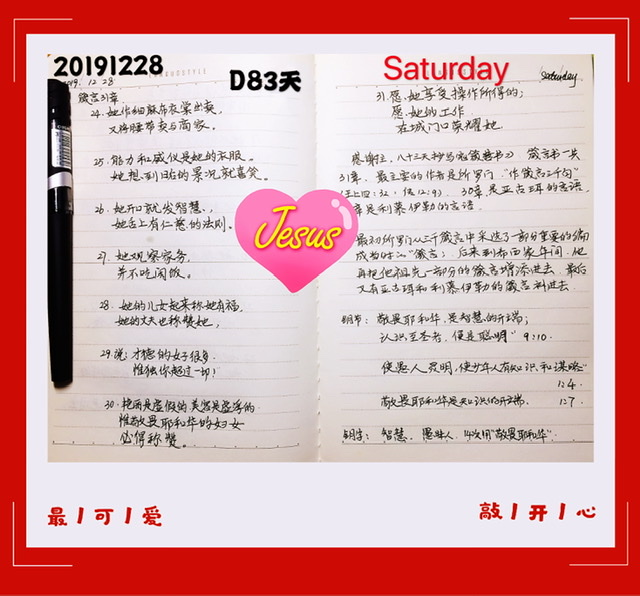 20191228
D83天
Saturday
2019. 12. 28
箴言31章
24. 她作细麻布衣裳出卖，
又将腰带卖与商家。
25. 能力和威仪是她的衣服。
她想到日后的景况就喜笑。
26. 她开口就发智慧，
她舌上有仁慈的法则。
27. 她观察家务，
并不吃闲饭。
28. 她的儿女起来称她有福，
她的丈夫也称赞她，
29. 说：才德的女子很多，
惟独你超过一切！
30. 艳丽是虚假的 美容是虚浮的
惟敬畏耶和华的妇女
必得称赞。
Saturday
31. 愿她享受操作所得的；
愿她的工作
在城门口荣耀她
Jesus
感谢主，八十三天抄写完箴言书 箴言书一共
31章，最主要的作者是所罗门 "作箴言三千句"
（王上4:32；传12:9）. 30章是亚古珥的言语，
章是利慕伊勒的言语.
最初所罗门从三千箴言中采选了一部分重要的编
成为 箴言；后来到希西家年间，他
再把他 一部分的箴言增添进去，最后
又有亚古珥和利慕伊勒的箴言 进去.
钥节：敬畏耶和华，是智慧的开端；
认识至圣者，便是聪明" 9:10.
使愚人灵明，使少年人有知识和谋略
1:4.
敬畏耶和华是知识的开端. 1:7.
钥字：智慧. 愚昧人. 14次用"敬畏耶和华".
最 | 可 | 爱
敲 | 开 | 心